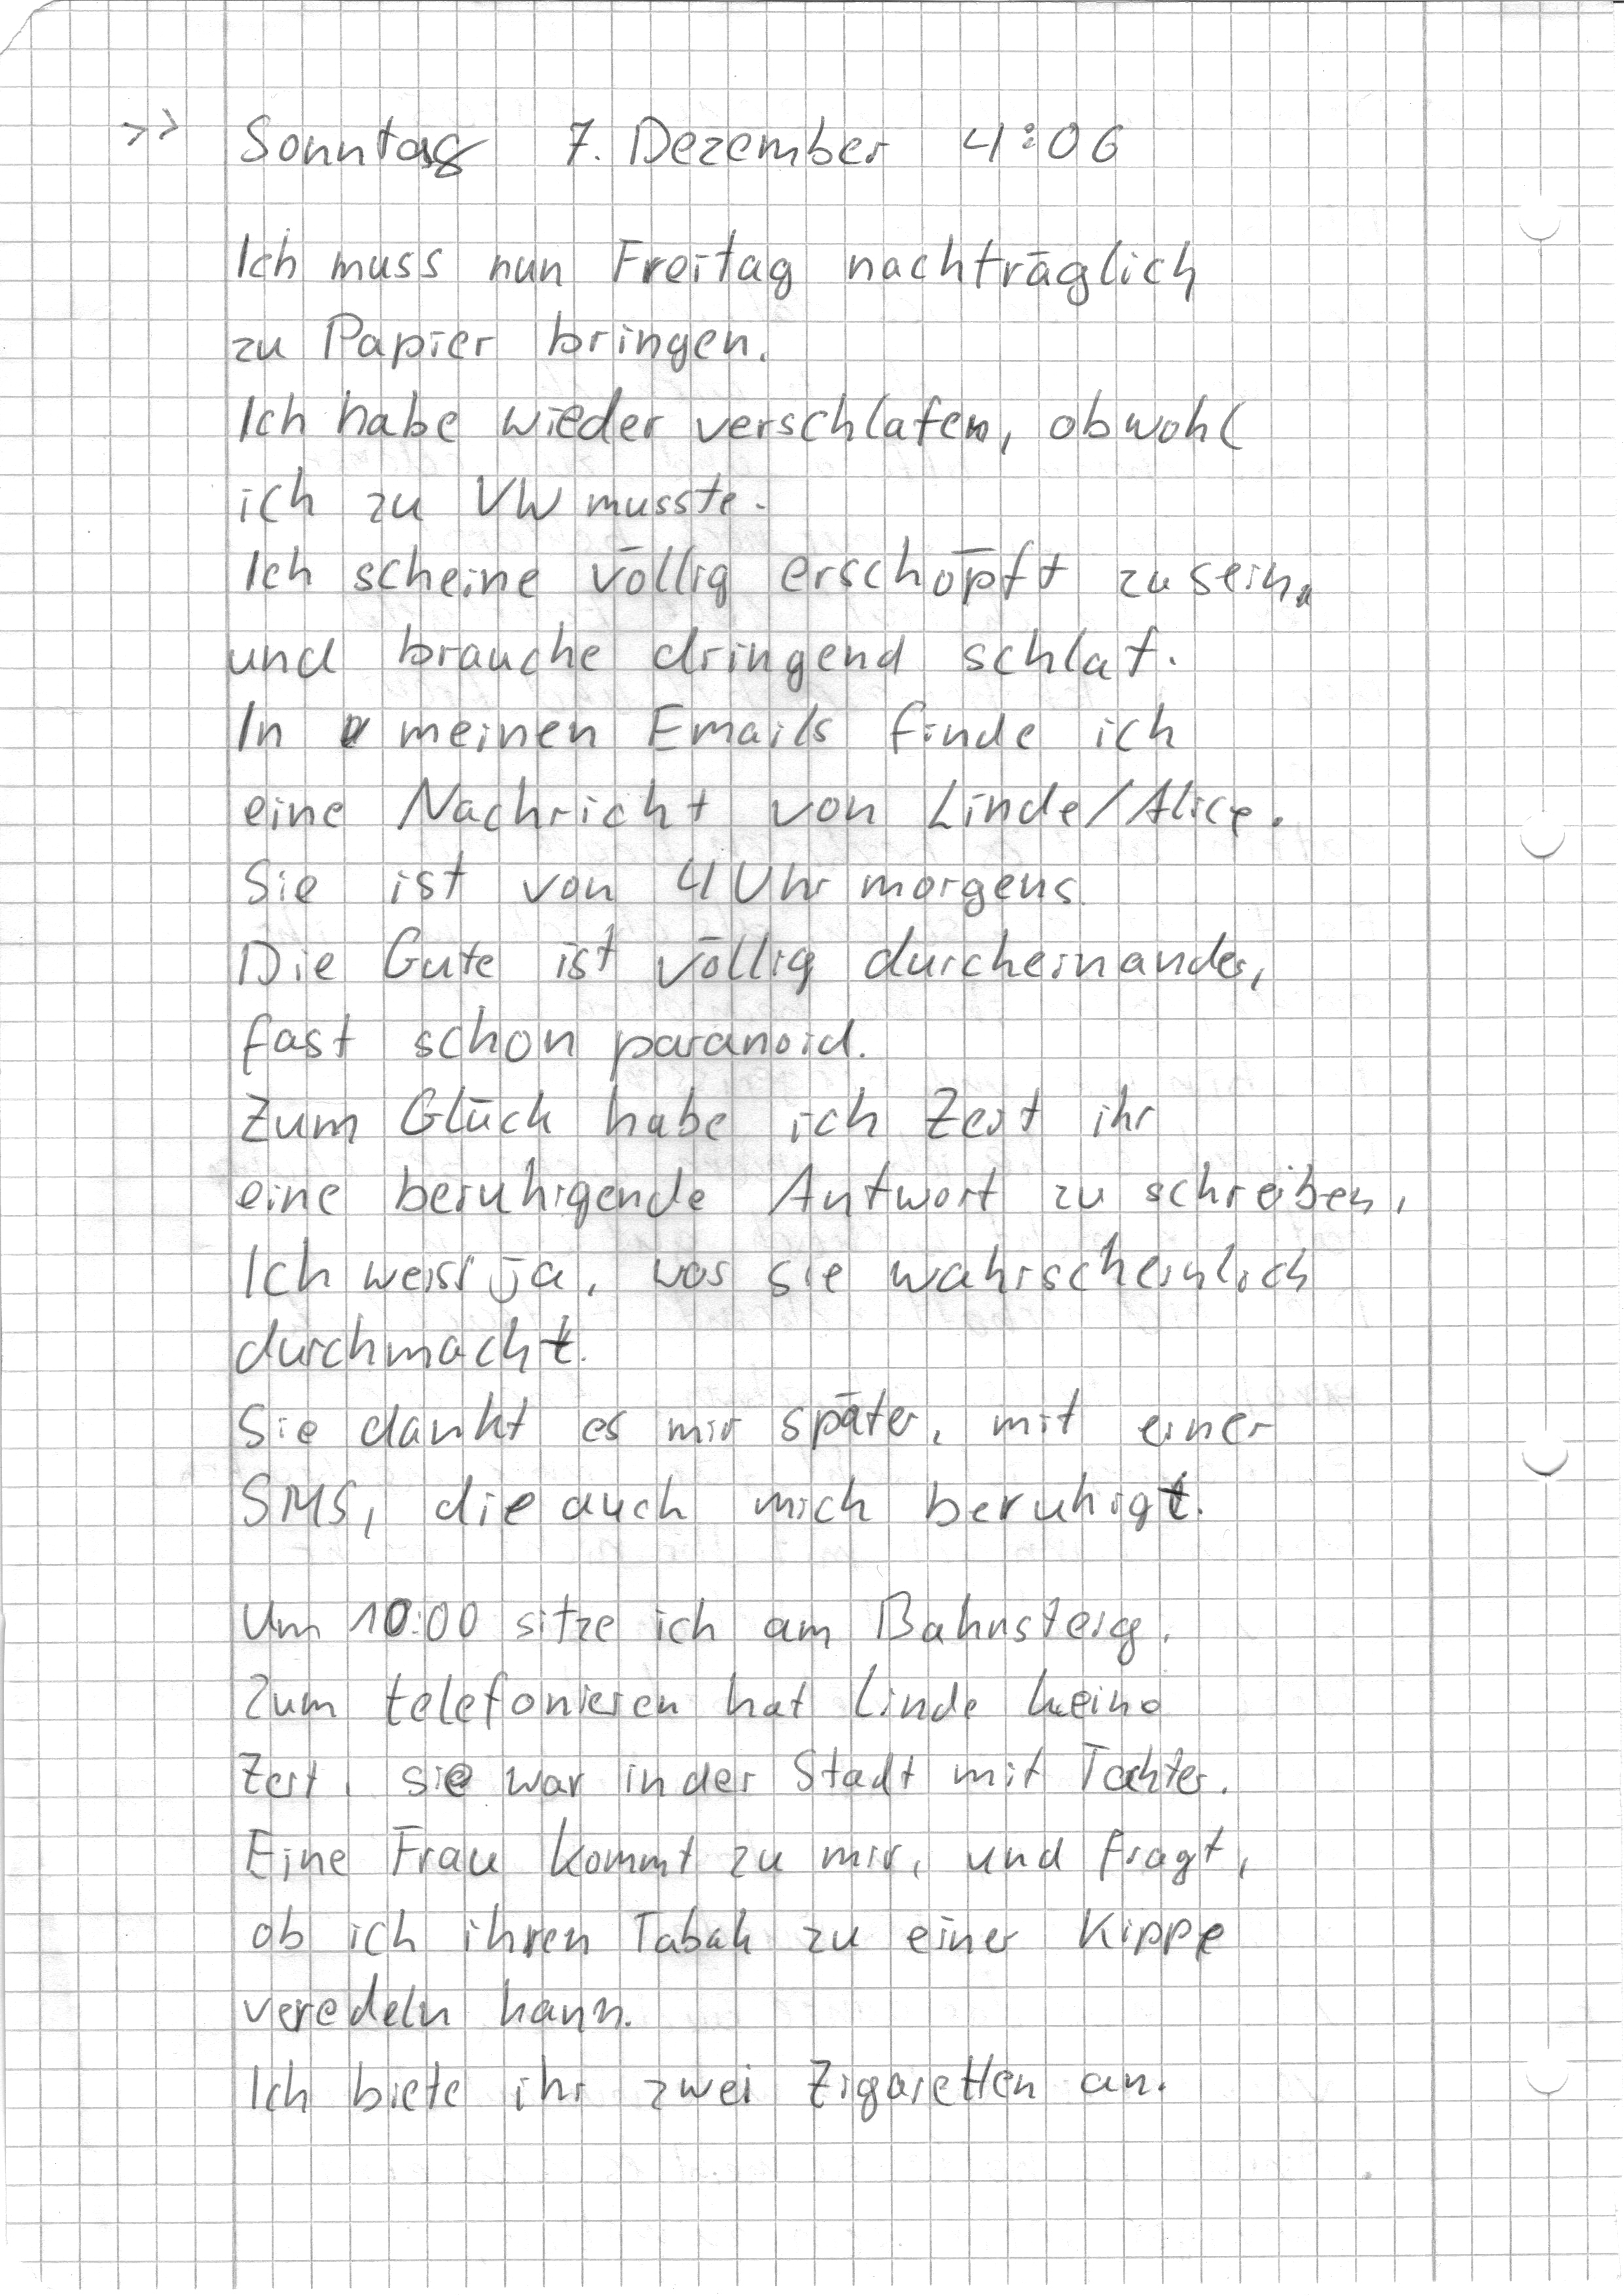 >> Sonntag 7. Dezember 4:06
Ich muss nun Freitag nachträglich
zu Papier bringen.
Ich habe wieder verschlafen, obwohl
ich zu VW musste.
Ich scheine völlig erschöpft zu sein,
und brauche dringend schlaf.
In meinen Emails finde ich
eine Nachricht von Linde/Alice.
Sie ist von 4 Uhr morgens.
Die Gute ist völlig durcheinander,
fast schon paranoid.
Zum Glück habe ich Zeit ihr
eine beruhigende Antwort zu schreiben,
Ich weiss ja, was sie wahrscheinlich
durchmacht.
Sie dankt es mir später, mit einer
SMS, die auch mich beruhigt.
Um 10:00 sitze ich am Bahnsteig.
Zum telefonieren hat Linde keine
Zeit, sie war in der Stadt mit Tochter.
Eine Frau kommt zu mir, und fragt,
ob ich ihren Tabak zu einer Kippe
veredeln kann.
Ich biete ihr zwei Zigaretten an.